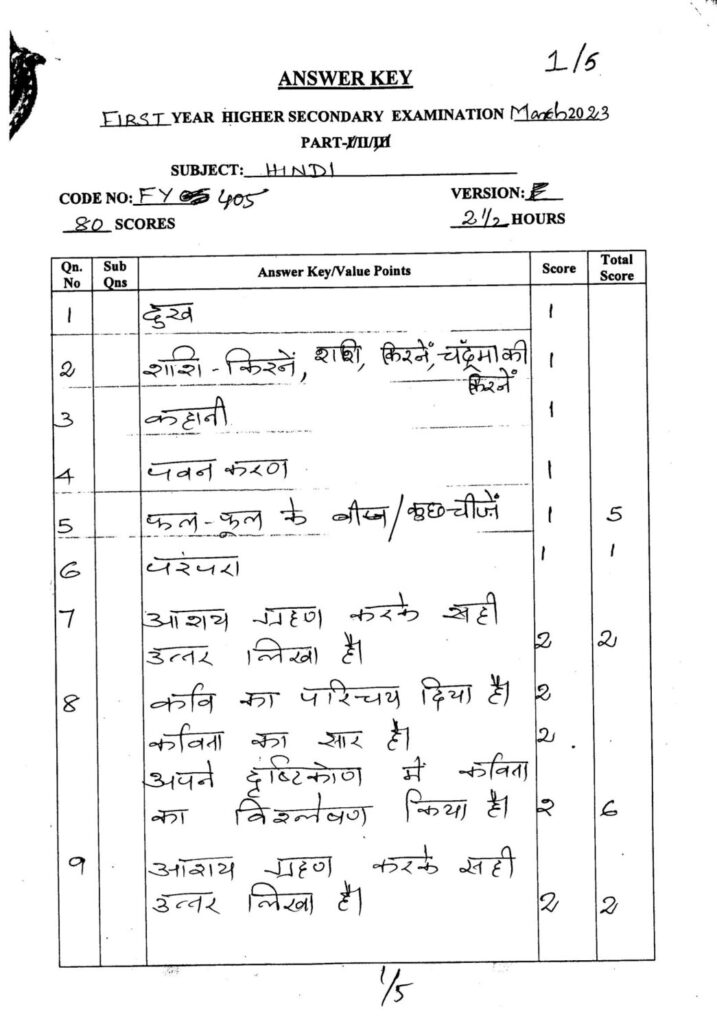 1/5
ANSWER KEY
FIRST YEAR HIGHER SECONDARY EXAMINATION March 2023
PART-I/II/III
SUBJECT: HINDI
CODE NO: FY 405 VERSION: E
80 SCORES 2 1/2 HOURS
Qn. No Sub Qns Answer Key/Value Points Score Total Score
1 दुःख 1
2 शशि-किरनें, शशि, किरनें, चंद्रमा की किरनें 1
3 कहानी 1
4 पवन करण 1
5 फल-फूल के बीज/कुछ चीज़ें 1 5
6 परंपरा 1 1
7 आशय ग्रहण करके सही
उत्तर लिखा है। 2 2
8 कवि का परिचय दिया है। 2
कविता का सार है। 2
अपने दृष्टिकोण में कविता
का विश्लेषण किया है। 2 6
9 आशय ग्रहण करके सही
उत्तर लिखा है। 2 2
1/5